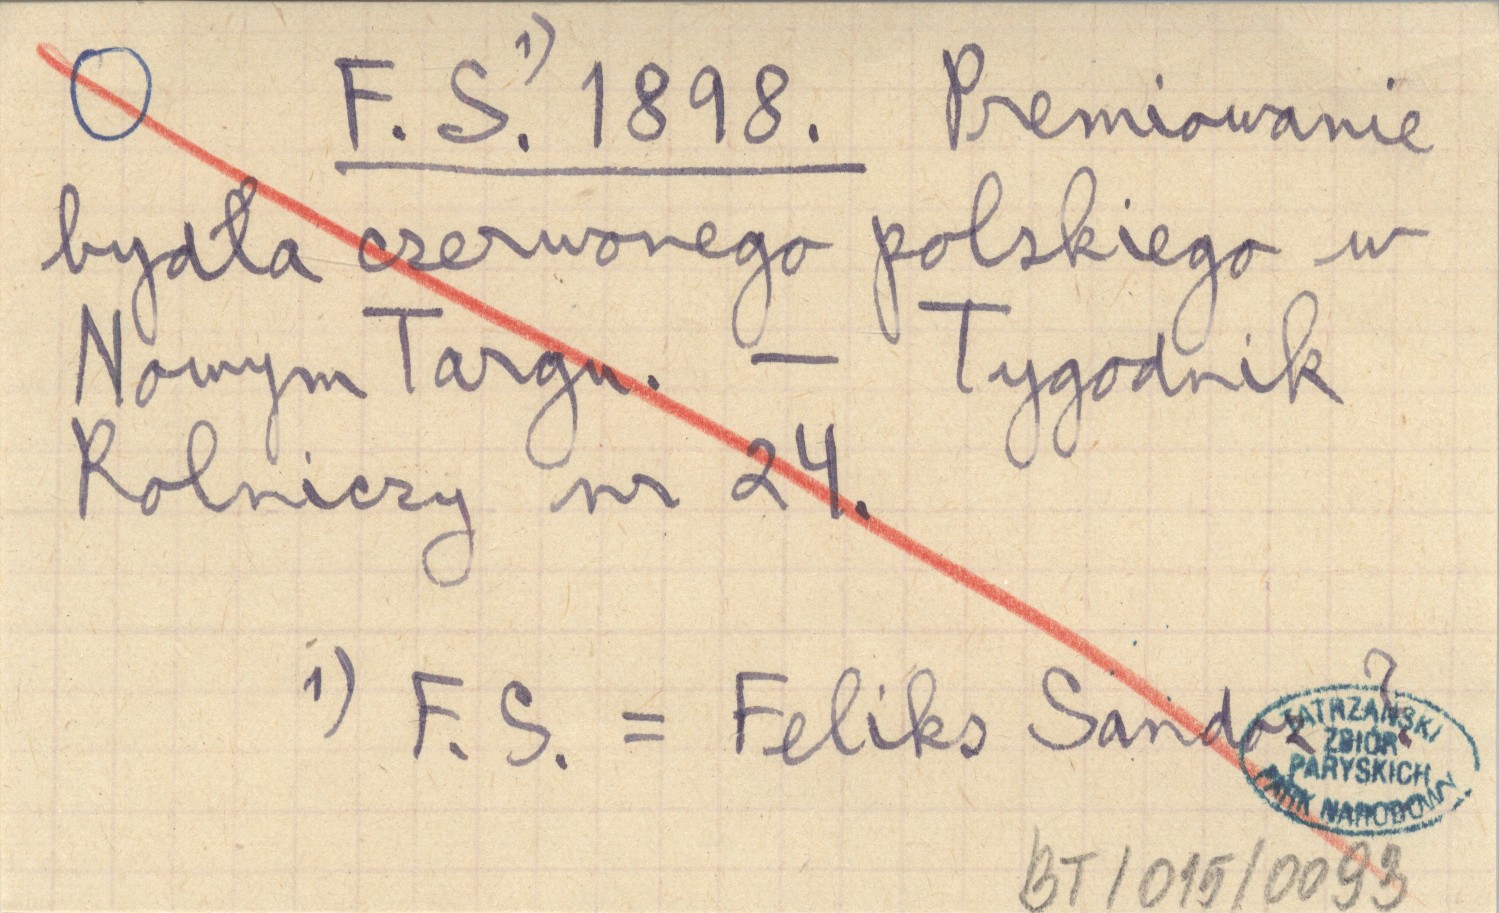 F. S.¹⁾ 1898. Premiowanie
bydła czerwonego polskiego w
Nowym Targu. — Tygodnik
Rolniczy nr 24.
¹⁾ F. S. = Feliks Sandoz?
TATRZAŃSKI
ZBIÓR
PARYSKICH
PARK NARODOWY
BT/015/0093